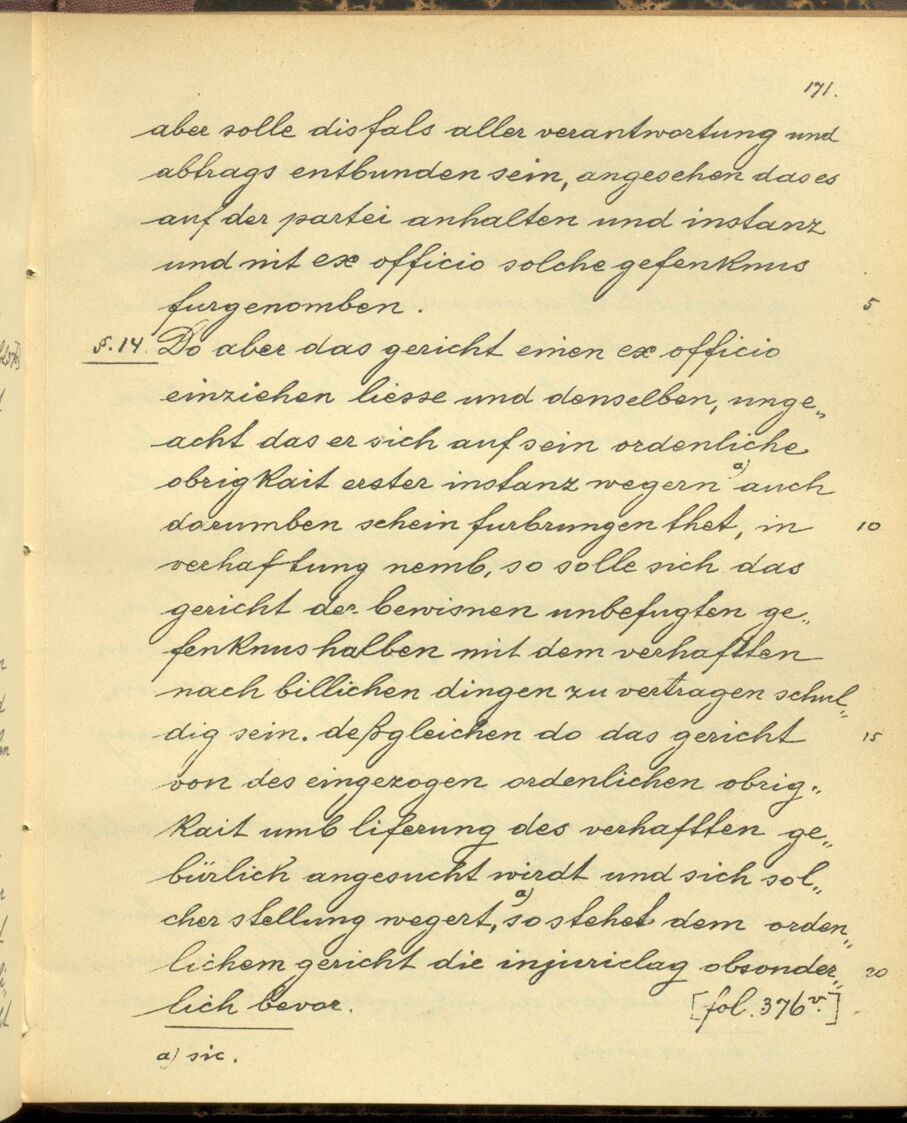 171.
aber solle disfals aller verantwortung und
abtrags entbunden sein, angesehen das es
auf der partei anhalten und instanz
und nit ex officio solche gefenknus
furgenomben. 5
§. 14. Do aber das gericht einen ex officio
einziehen liesse und denselben, unge„
acht das er sich auf sein ordenliche
obrigkait erster instanz wegern a) auch
darumben schein furbrungen thet, in 10
verhaftung nemb, so solle sich das
gericht der bewisnen unbefugten ge„
fenknus halben mit dem verhafften
nach billichen dingen zu vertragen schul„
dig sein. deßgleichen do das gericht 15
von des eingezogen ordenlichen obrig„
kait umb liferung des verhafften ge„
bürlich angesucht wirdt und sich sol„
cher stellung wegert, a) so stehet dem orden„
lichem gericht die injuriclag obsonder„ 20
lich bevor. [fol. 376 v.]
a) sic.